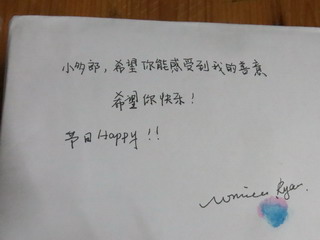 小多郎，希望你能感受到我的善意
希望你快乐！
节日Happy!!
Ryan